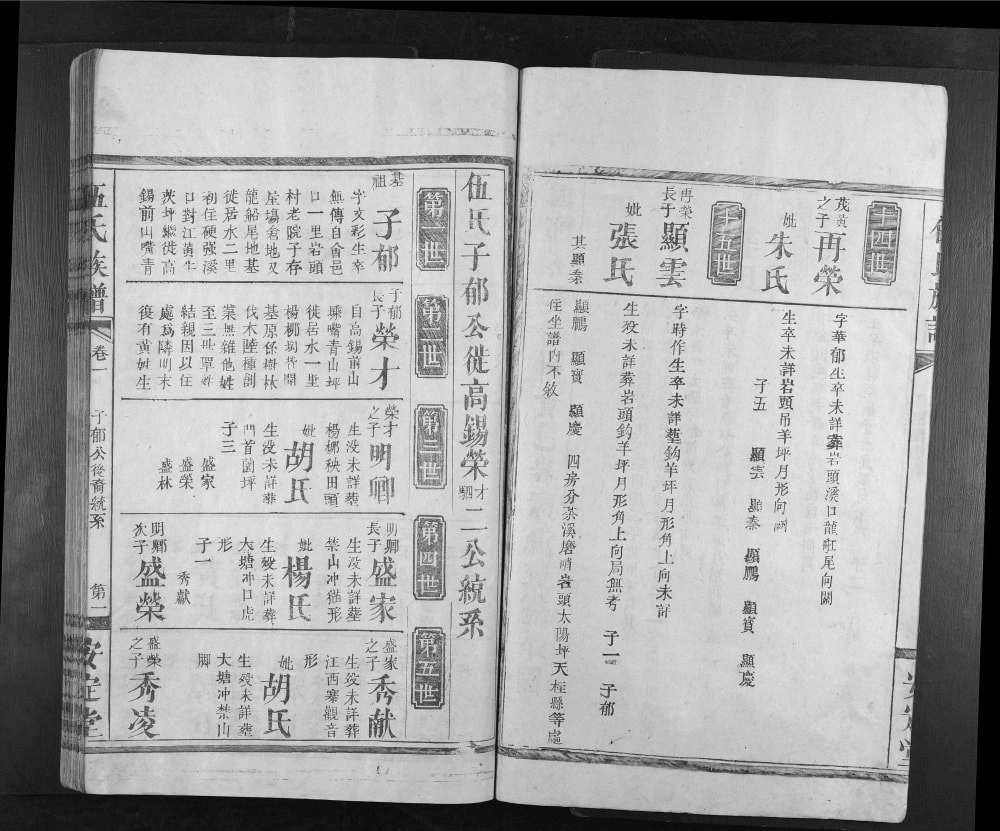 十四世
茂黃之子
再榮
字華郁生卒未詳葬岩頭溪口龍船尾向闕
妣
朱氏
生卒未詳岩頭吊羊坪月形向闕
子五 顯雲 顯泰 顯鵬 顯寳 顯慶
十五世
再榮長子
顯雲
字時作生卒未詳塟鈎羊坪月形角上向未詳
妣
張氏
生殁未詳葬岩頭鈎羊坪月形角上向局無考 子一 子郁
其顯泰
顯鵬 顯寳 顯慶 四房分茶溪磨哨岩頭太陽坪天柱縣等處
住坐譜內不敘
伍氏子郁公徙高錫榮才駟二公統系
第一世
第二世
第三世
第四世
第五世
基祖
子郁
字文彩生卒
無傳自會邑
口一里岩頭
村老院子存
屋塲倉地又
龍船尾地基
徙居水二里
初住硬强溪
口對江黃牛
茨坪繼徙高
錫前山嘴青
子郁長子
榮才
自高錫前山
嘴青山坪
徙居水一里
楊柳
基原係樹林
伐木陸種創
業無雜他姓
至三世單姓
結親因以任
處爲隣明末
復有黃姓生
榮才之子
明卿
生没未詳塟
楊柳秧田頭
妣
胡氏
生没未詳葬
門首園坪
子三
盛家
盛榮
盛林
明卿長子
盛家
生没未詳塟
禁山冲猫形
妣
楊氏
生殁未詳葬
大塘冲口虎
形
子一
秀獻
明卿次子
盛榮
盛家之子
秀献
生殁未詳葬
江西寨觀音
形
妣
胡氏
生殁未詳塟
大塘冲禁山
脚
盛榮之子
秀凌
伍氏族譜
卷一
子郁公後裔統系
第二
安定堂